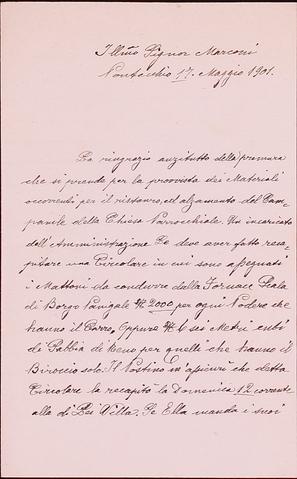 Illmo Signor Marconi
Pontecchio 17. Maggio 1901.
La ringrazio anzitutto della premura
che si prende per la provvista dei Materiali
occorrenti per il ristauro, ed alzamento del Cam-
panile della Chiesa Parrocchiale. Un incaricato
dell'Amministrazione Le deve aver fatto reca-
pitare una Circolare in cui sono assegnati
i Mattoni da condurre dalla Fornace Scala
di Borgo Panigale N. 2000 per ogni Podere che
hanno il Carro, Oppure N. 6 sei Metri cubi
di Sabbia di Reno per quelli che hanno il
Biroccio solo. Il Postino m'assicurò che detta
Circolare la recapitò la Domenica 12 corrente
alla di Lei Villa. Se Ella manda i suoi